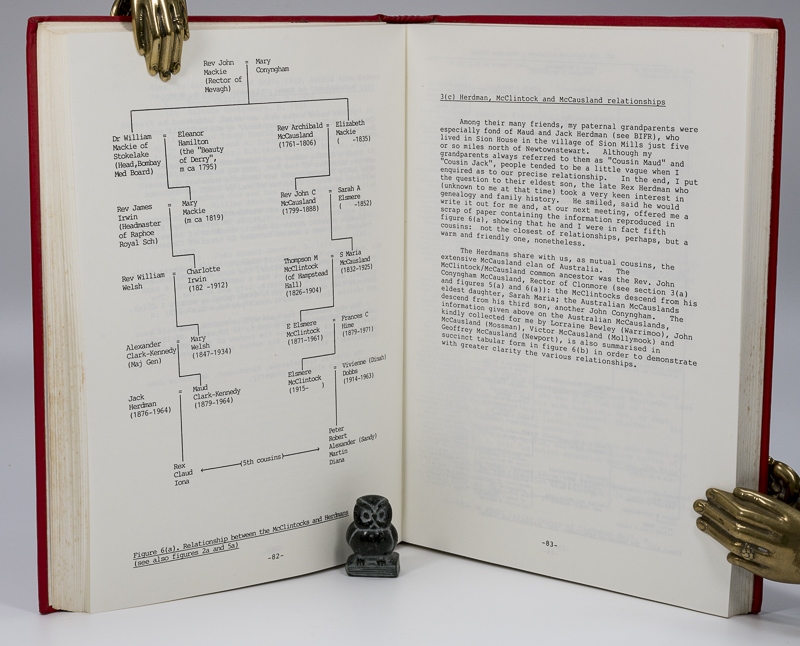 Rev John = Mary
Mackie Conyngham
(Rector of
Mevagh)
Dr William = Eleanor
Mackie of Hamilton
Stokelake (the "Beauty
(Head,Bombay of Derry",
Med Board) m ca 1795)
Rev Archibald = Elizabeth
McCausland Mackie
(1761-1806) ( -1835)
Rev James = Mary
Irwin Mackie
(Headmaster (m ca 1819)
of Raphoe
Royal Sch)
Rev John C = Sarah A
McCausland Elsmere
(1799-1888) ( -1852)
Rev William = Charlotte
Welsh Irwin
(182 -1912)
Thompson M = S Maria
McClintock McCausland
(of Hampstead (1832-1925)
Hall)
(1826-1904)
Alexander = Mary
Clark-Kennedy Welsh
(Maj Gen) (1847-1934)
E Elsmere = Frances C
McClintock Hime
(1871-1961) (1879-1971)
Jack = Maud
Herdman Clark-Kennedy
(1876-1964) (1879-1964)
Elsmere = Vivienne (Dinah)
McClintock Dobbs
(1915- ) (1914-1963)
Rex
Claud
Iona
(5th cousins)
Peter
Robert
Alexander (Sandy)
Martin
Diana
Figure 6(a). Relationship between the McClintocks and Herdmans
(see also figures 2a and 5a)
-82-
3(c) Herdman, McClintock and McCausland relationships
Among their many friends, my paternal grandparents were
especially fond of Maud and Jack Herdman (see BIFR), who
lived in Sion House in the village of Sion Mills just five
or so miles north of Newtownstewart. Although my
grandparents always referred to them as "Cousin Maud" and
"Cousin Jack", people tended to be a little vague when I
enquired as to our precise relationship. In the end, I put
the question to their eldest son, the late Rex Herdman who
(unknown to me at that time) took a very keen interest in
genealogy and family history. He smiled, said he would
write it out for me and, at our next meeting, offered me a
scrap of paper containing the information reproduced in
figure 6(a), showing that he and I were in fact fifth
cousins: not the closest of relationships, perhaps, but a
warm and friendly one, nonetheless.
The Herdmans share with us, as mutual cousins, the
extensive McCausland clan of Australia. The
McClintock/McCausland common ancestor was the Rev. John
Conyngham McCausland, Rector of Clonmore (see section 3(a)
and figures 5(a) and 6(a)): the McClintocks descend from his
eldest daughter, Sarah Maria; the Australian McCauslands
descend from his third son, another John Conyngham. The
information given above on the Australian McCauslands,
kindly collected for me by Lorraine Bewley (Warrimoo), John
McCausland (Mossman), Victor McCausland (Mollymook) and
Geoffrey McCausland (Newport), is also summarised in
succinct tabular form in figure 6(b) in order to demonstrate
with greater clarity the various relationships.
-83-